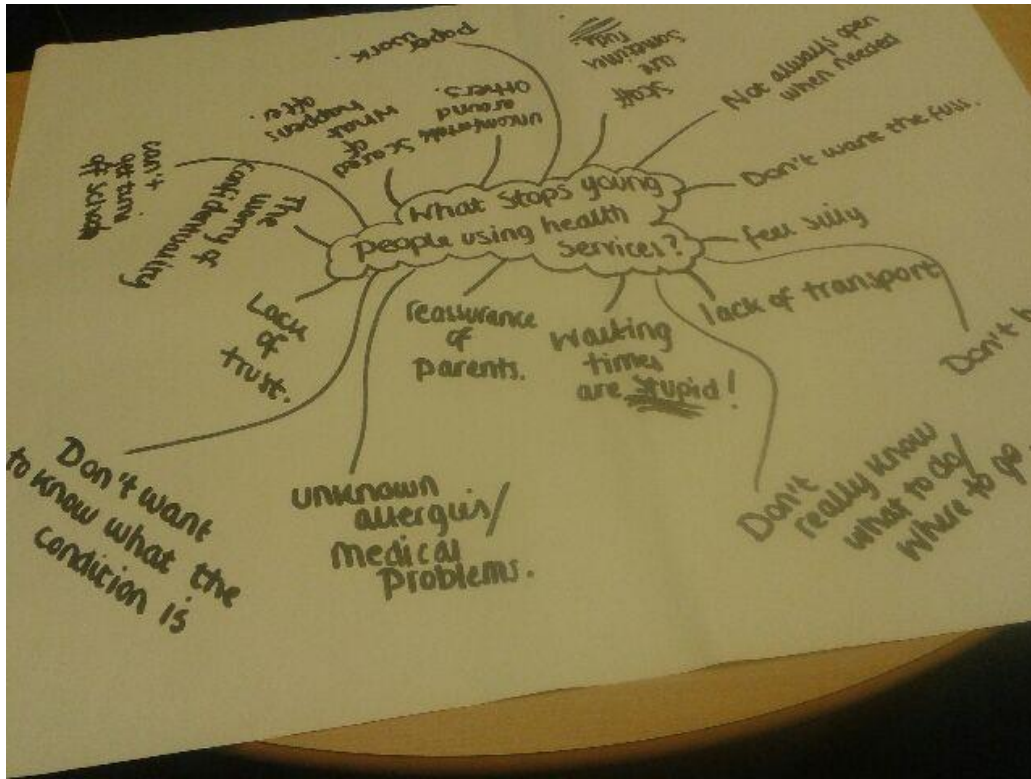 What stops young
people using health
services?
paper
work.
staff
are
sometimes
rude.
Not always open
when needed
Don't want the fuss.
feel silly
lack of transport
Don't
Don't
really know
what to do/
where to go.
Waiting
times
are stupid!
reassurance
of
parents.
unknown
allergies/
medical
problems.
Don't want
to know what the
condition is
Lack
of
trust.
The
worry of
confidentiality
can't
get time
off school
scared
of
what
happens
after.
uncomfortable
around
others.